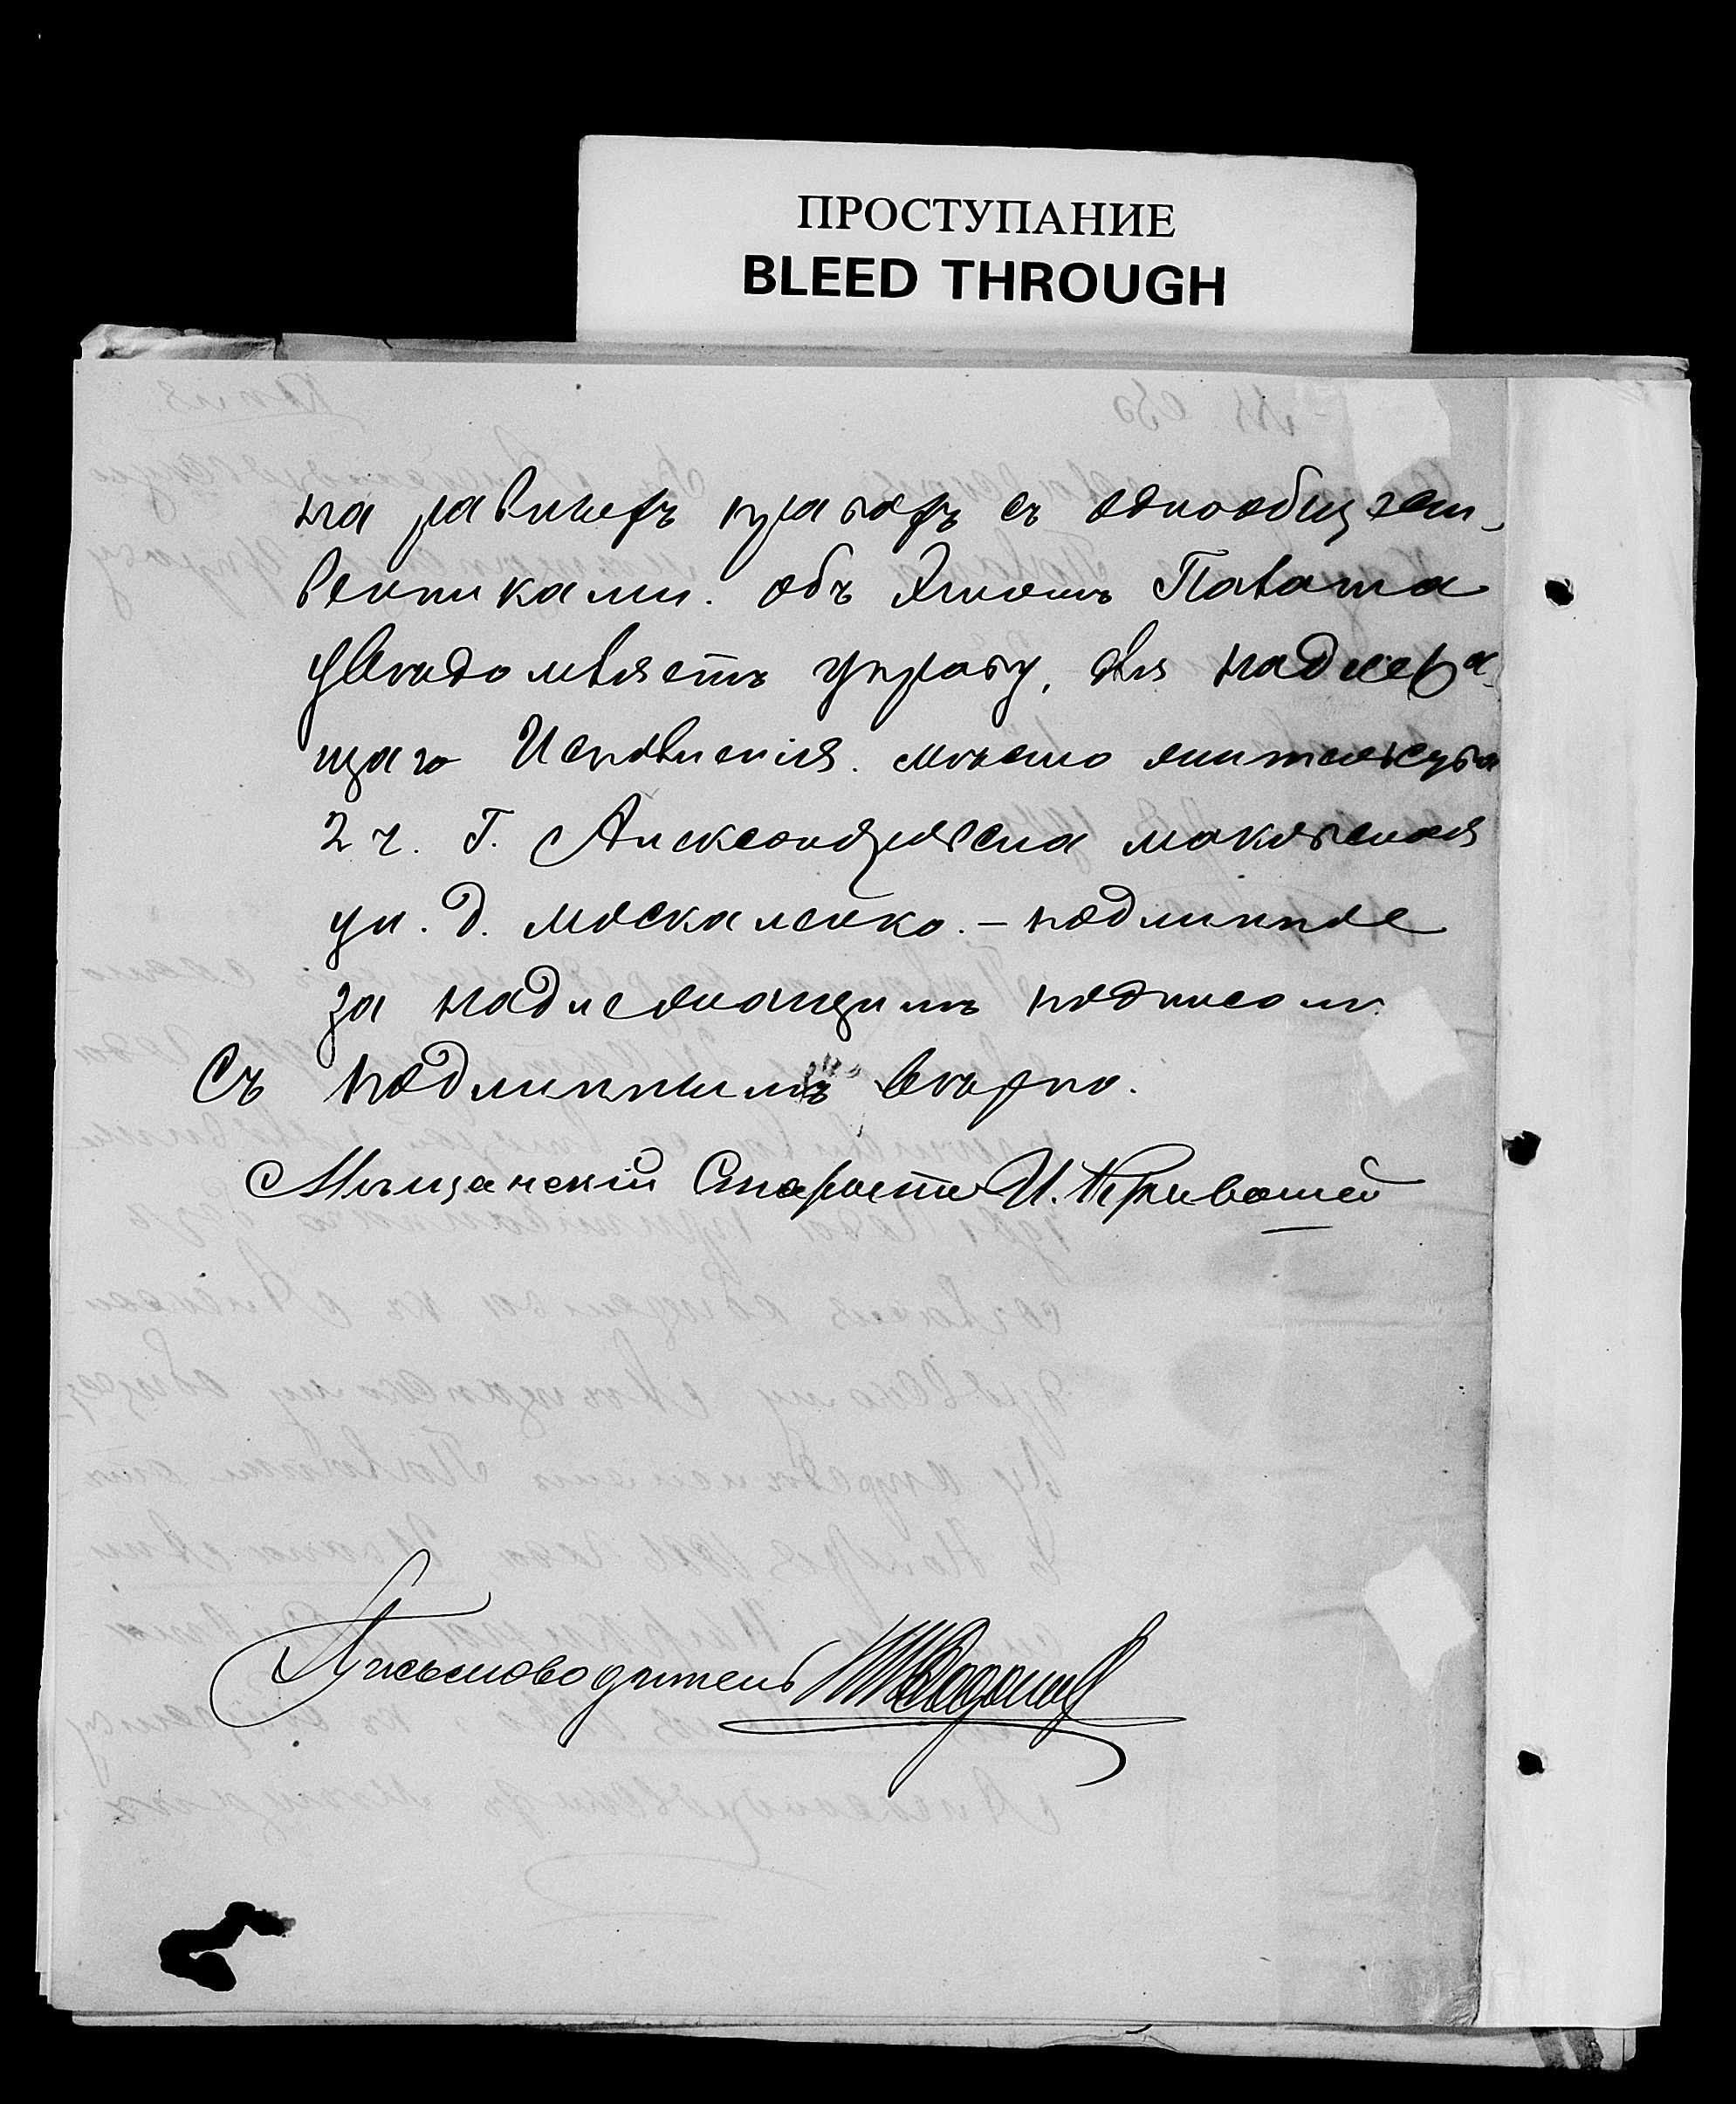 ПРОСТУПАНИЕ
BLEED THROUGH
на равныхъ правахъ съ однообществ
венниками. объ Этомъ Палата
увѣдомляетъ управу, для надлежа
щаго Исполненія. мѣсто жительства
2 ч. Г. Александровска
ул. д. Москаленко. – подлинное
за надлежащимъ подписом.
Съ подлиннымъ вѣрно.
Мѣщанскій Староста И. Кривошей
Письмоводитель